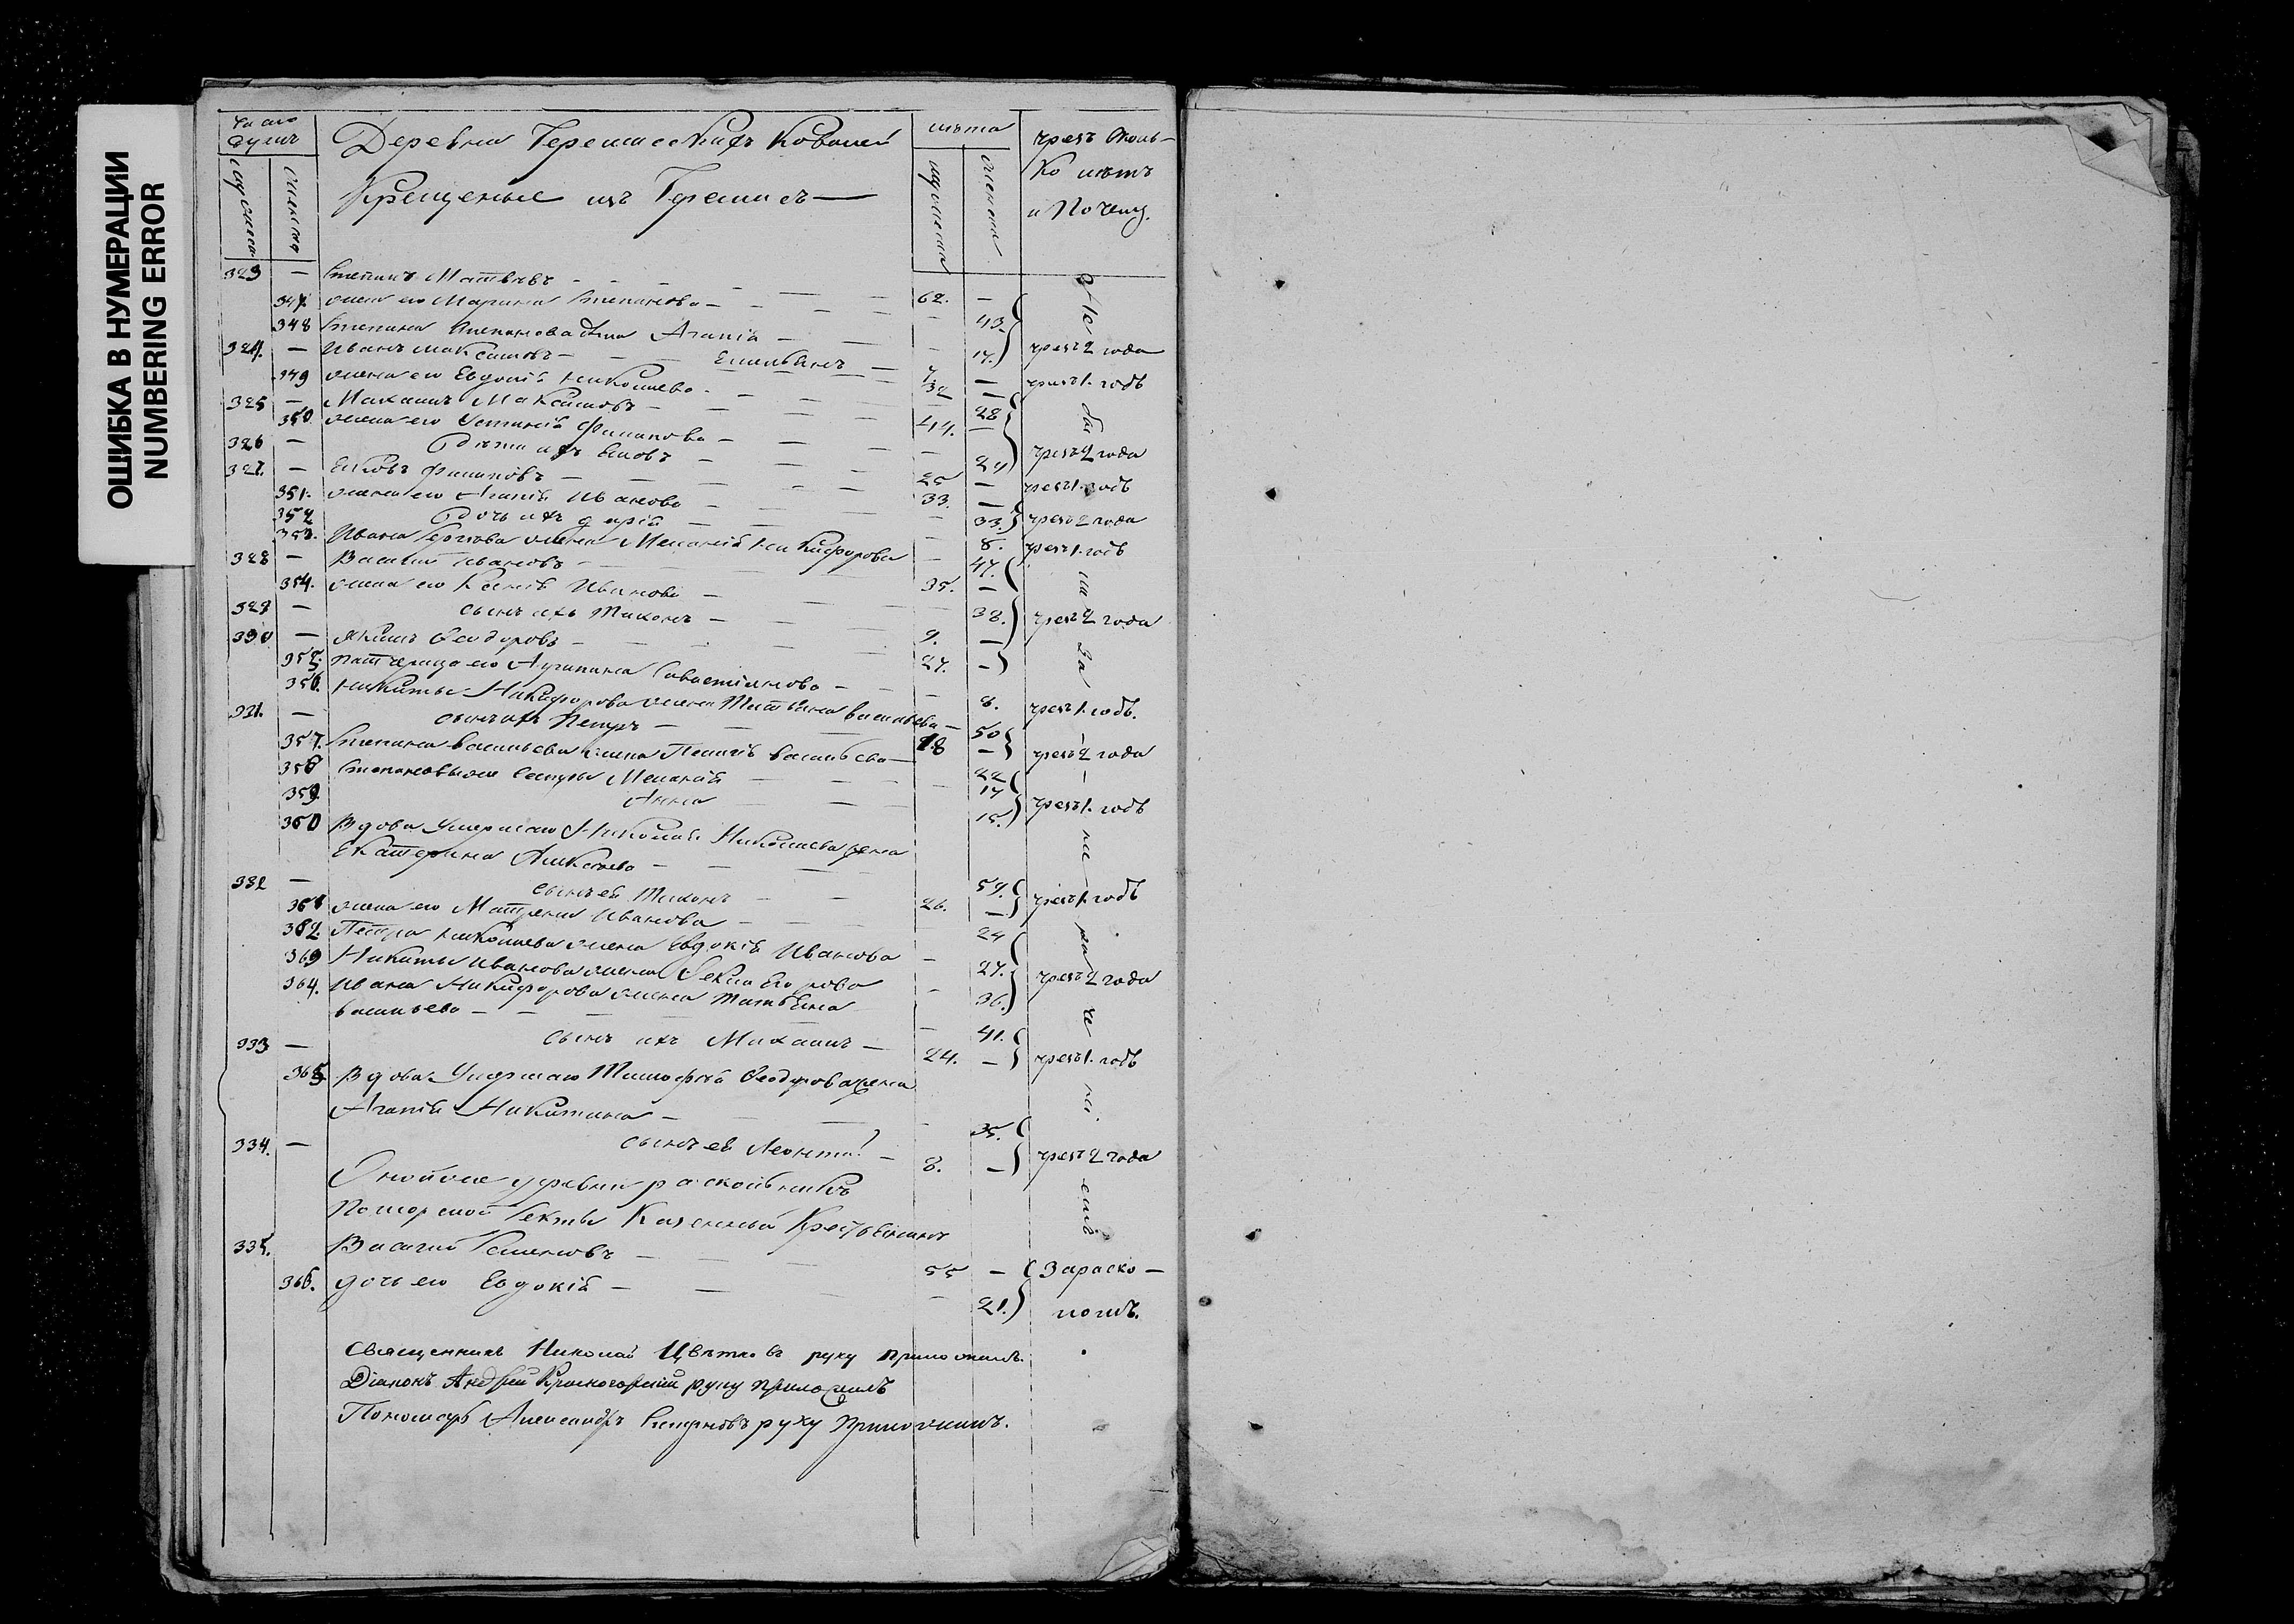 ОШИБКА В НУМЕРАЦИИ
NUMBERING ERROR
Число душъ
мужеска
женска
Деревни Черемисскихъ Ковалей
Крещеные изъ Черемисъ —
лѣта
мужеска
женска
чрезъ сколь-
ко лѣтъ
и почему.
323 — Степанъ Матвѣевъ — 62. —
347. жена его Марина Степанова — 43.
348 Степана Степанова дочь Агапія — 17. чрезъ 2 года
324. — Иванъ Максимовъ — Емельянъ — 32 — чрезъ 1. годъ
349 жена его Евдокія Николаева — 28
325 — Михаилъ Максимовъ — 44. —
350 жена его Устинія Филипова — 24 чрезъ 2 года
326 — дѣти ихъ Яковъ — 25 — чрезъ 1. годъ
327. — Яковъ Филиповъ — 33. —
351. жена его Агапія Иванова — 33. чрезъ 2 года
352 дочь ихъ Дарія — 8. чрезъ 1. годъ
353. Ивана жена Меланія Никифорова — 47.
328 — Василій Ивановъ — 35. —
354. жена его Ксенія Иванова — 38. чрезъ 2 года
329 — сынъ ихъ Тихонъ — 9. —
330 — Якимъ Ѳеодоровъ — 27. —
355. патчерица его Агрипина Савастіянова — 8. чрезъ 1. годъ.
356. Никиты Никифорова жена Татьяна Васильева — 50
331. — сынъ ихъ Петръ — 18 — чрезъ 2 года
357. Степана Васильева жена Васильева — 22
358 Степановыже сестры Меланія — 17
359 Анна — 15. чрезъ 1. годъ
360 Вдова умершаго Николая Николаева жена
Екатерина Алексѣева — 59.
332 — сынъ ея Тихонъ — 26. — чрезъ 1. годъ
361 жена его Матрена Иванова — 24
362. Петра Николаева жена Евдокія Иванова — 27.
363 Никиты Иванова жена Ѳекла Егорова — 36. чрезъ 2 года
364. Ивана Никифорова жена Татьяна
Васильева — 41.
333 — сынъ ихъ Михаилъ — 24. — чрезъ 1. годъ
365 Вдова умершаго Тимофея Ѳеодорова жена
Агапія Никитина — 35.
334. — сынъ ея Леонтій — 8. — чрезъ 2 года
Онойже деревни раскольникъ
Поморской секты Казенный Крестьянинъ
335. Василій Семеновъ — 55 — За раско-
366. дочь его Евдокія — 21. ломъ.
Не
бы
ли
за
не
ра
че
ні
емъ
Священникъ Николай Цвѣтковъ руку приложилъ.
Діаконъ Андрей Красногорскій руку приложилъ
Пономарь Александръ Смирновъ руку приложилъ.